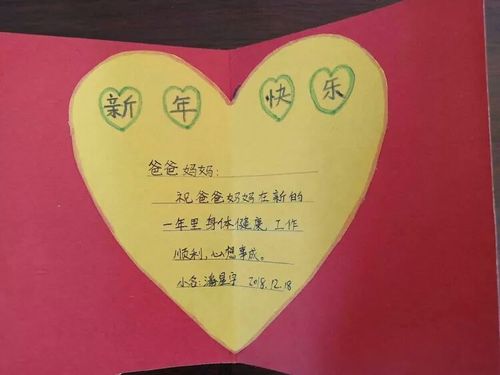 新年快乐
爸爸妈妈:
祝爸爸妈妈在新的
一年里身体健康,工作
顺利,心想事成。
小名:潘星宇 2018.12.18